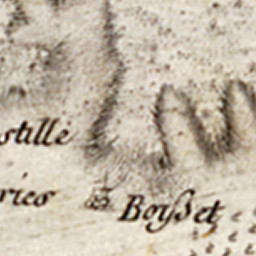 stille
ries
Boysset